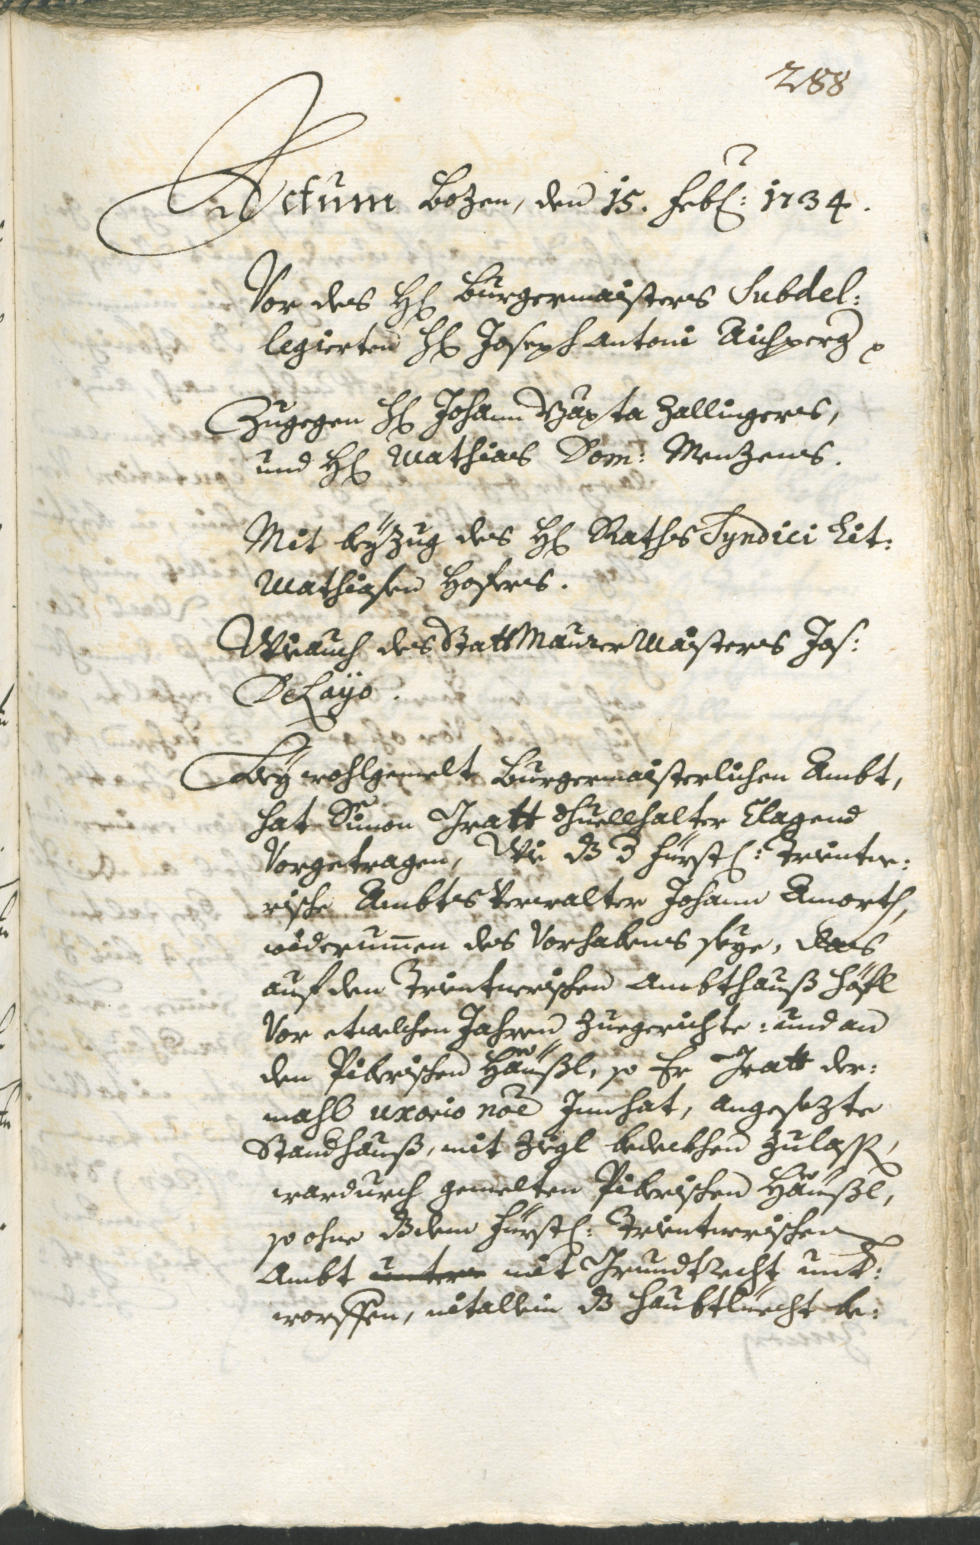 288
Actum Bozen, den 15. Feb: 1734.
Vor des H Burgermaisters Subdel:
legierten H Joseph Antoni Aichperg
Zugegen H Johann Bapta Zallingers,
und H Mathias Dom: Menzens.
Mit beÿzug des H Raths Syndici Lit:
Mathiasen Hofers.
Wie auch des StattMaurerMaisters Jos:
Delajo.
Beÿ wohlgemelt Burgermaisterlichen Ambt,
hat Simon Gratt Clagend
Vorgetragen, Wie dz d fürstl: Trientne:
rische Ambts Verwalter Johann Amorth,
widerumen des Vorhabens seÿe, das
auf den Trientnerischen Ambthauß Höfl
Vor etwelchen Jahren zuegerichte: und an
den Piberischen Heüßl, so Er Gratt der:
mahls uxorio nōe Innhat, angesezte
Standhauß, mit Zigl bedeckhen zulassen,
wardurch gemelten Piberischen Heüßl,
so ohne dz dem fürstl: Trientnerischen
Ambt mit Grundtrecht unt:
worffen, nit allein dz Haubtliecht be: